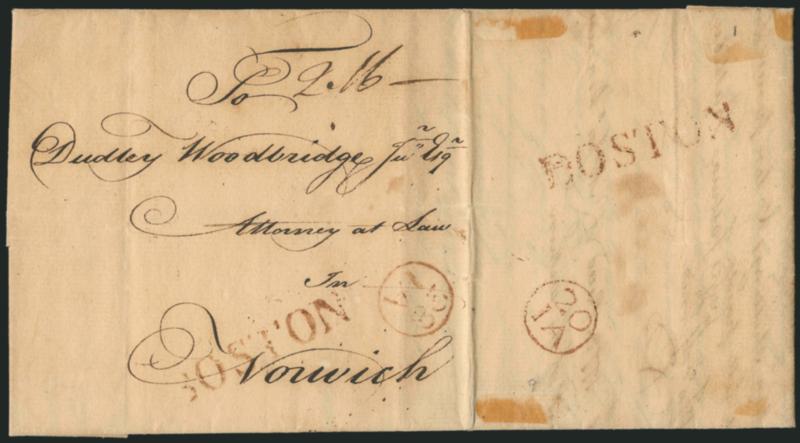 To 2.16
Dudley Woodbridge Junr Esqr
Attorney at Law
In
Norwich
BOSTON
BOSTON
20
IA